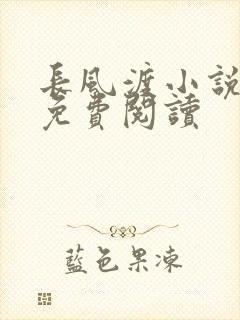 長風渡小說
免費閱讀
藍色果凍